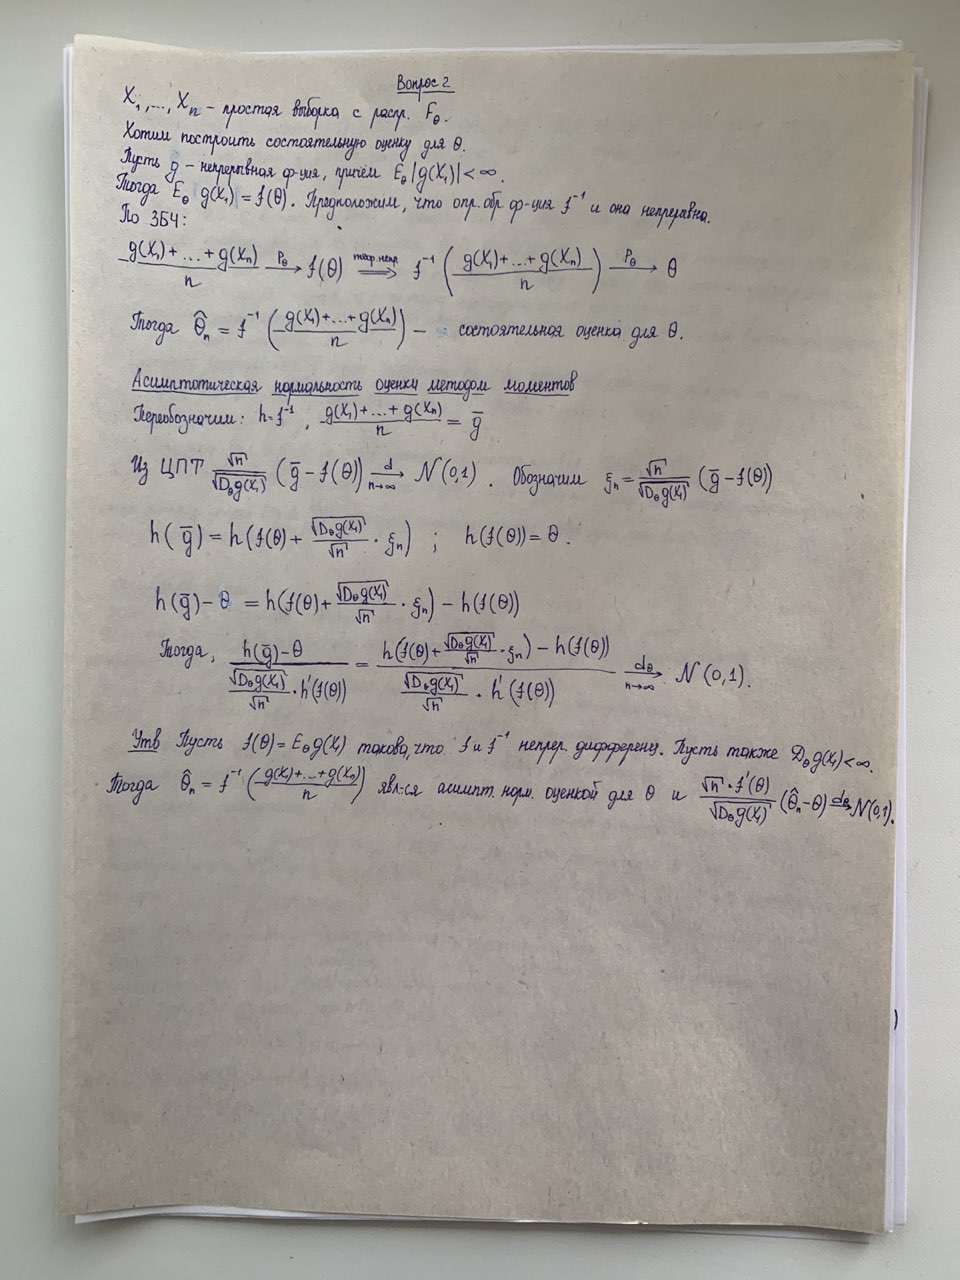 Вопрос 2
X₁,..., Xₙ – простая выборка с распр. F_θ.
Хотим построить состоятельную оценку для θ.
Пусть g – непрерывная ф-ция, причём E_θ|g(X₁)| < ∞.
Тогда E_θ g(X₁) = f(θ). Предположим, что опр. обр. ф-ция f⁻¹ и она непрерывна.
По ЗБЧ:
(g(X₁)+...+g(Xₙ))/n →^{P_θ} f(θ) ⟹^{теор. непр.} f⁻¹((g(X₁)+...+g(Xₙ))/n) →^{P_θ} θ
Тогда θ̂ₙ = f⁻¹((g(X₁)+...+g(Xₙ))/n) – состоятельная оценка для θ.
Асимптотическая нормальность оценки методом моментов
Переобозначим: h = f⁻¹, (g(X₁)+...+g(Xₙ))/n = ḡ
Из ЦПТ √n/√(D_θ g(X₁)) (ḡ – f(θ)) →^{d}_{n→∞} N(0,1). Обозначим ξₙ = √n/√(D_θ g(X₁)) (ḡ – f(θ))
h(ḡ) = h(f(θ) + √(D_θ g(X₁))/√n · ξₙ) ; h(f(θ)) = θ.
h(ḡ) – θ = h(f(θ) + √(D_θ g(X₁))/√n · ξₙ) – h(f(θ))
Тогда, (h(ḡ) – θ)/(√(D_θ g(X₁))/√n · h'(f(θ))) = (h(f(θ) + √(D_θ g(X₁))/√n · ξₙ) – h(f(θ)))/(√(D_θ g(X₁))/√n · h'(f(θ))) →^{d_θ}_{n→∞} N(0,1).
Утв Пусть f(θ) = E_θ g(X₁) такова, что f и f⁻¹ непрер. дифференц. Пусть также D_θ g(X₁) < ∞.
Тогда θ̂ₙ = f⁻¹((g(X₁)+...+g(Xₙ))/n) явл-ся асимпт. норм. оценкой для θ и √n · f'(θ)/√(D_θ g(X₁)) (θ̂ₙ – θ) →^{d_θ} N(0,1).